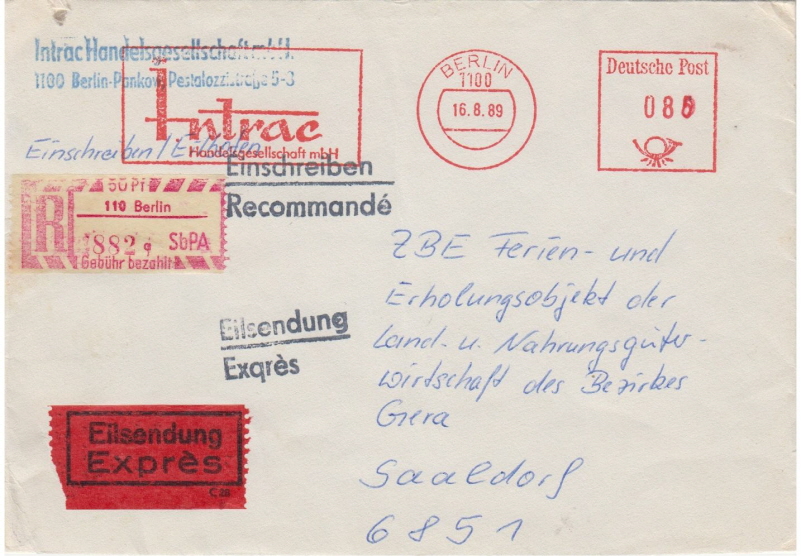 Intrac Handelsgesellschaft mbH.
1100 Berlin-Pankow, Pestalozzistraße 5-8
Intrac
Handelsgesellschaft mbH
BERLIN
1100
16.8.89
Deutsche Post
Einschreiben / Eilboten
Einschreiben
Recommandé
50 Pf
110 Berlin
R
882 g
SbPA
Gebühr bezahlt
ZBE Ferien- und
Erholungsobjekt der
Land- u. Nahrungsgüter-
wirtschaft des Bezirkes
Gera
Saaldorf
6851
Eilsendung
Exprès
Eilsendung
Exprès